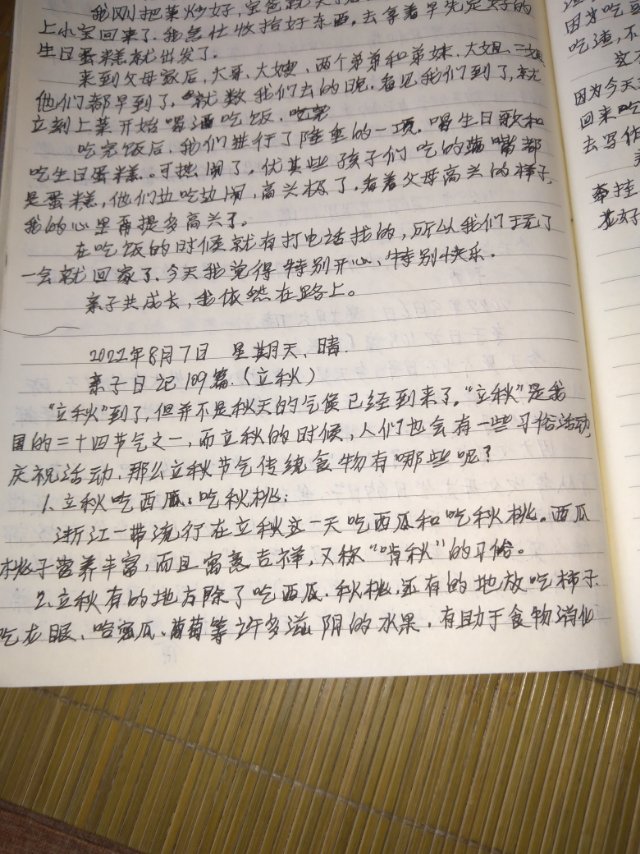 我刚把菜炒好,宝爸就
上小宝回来了。我急忙收拾好东西。去拿着早先定好的
生日蛋糕就出发了。
来到父母家后,大哥、大嫂,两个弟弟和弟妹、大姐、三妹
他们都早到了,就数我们去的晚,看见我们到了,就
立刻上菜开始喝酒吃饭,吃完
吃完饭后,我们进行了隆重的一项,唱生日歌和
吃生日蛋糕。可热闹了。尤其些孩子们吃的满嘴都
是蛋糕,他们边吃边闹,高兴极了。看着父母高兴的样子,
我的心里再提多高兴了。
在吃饭的时候就有打电话找的,所以我们玩了
一会就回家了。今天我觉得特别开心、特别快乐.
亲子共成长,我依然在路上。
2022年8月7日 星期天、晴.
亲子日记109篇.(立秋)
"立秋"到了,但并不是秋天的气候已经到来了。"立秋"是我
国的二十四节气之一,而立秋的时候,人们也会有一些习俗活动
庆祝活动,那么立秋节气传统食物有哪些呢?
1.立秋吃西瓜:吃秋桃:
浙江一带流行在立秋这一天吃西瓜和吃秋桃。西瓜
桃子营养丰富,而且寓意吉祥,又称"啃秋"的习俗。
2.立秋有的地方除了吃西瓜.秋桃.还有的地放吃柿子
吃龙眼、哈密瓜、葡萄等许多滋阴的水果,有助于食物消化
因为吃
吃渣,不
这
因为今天
回来吃
去写作
牵挂